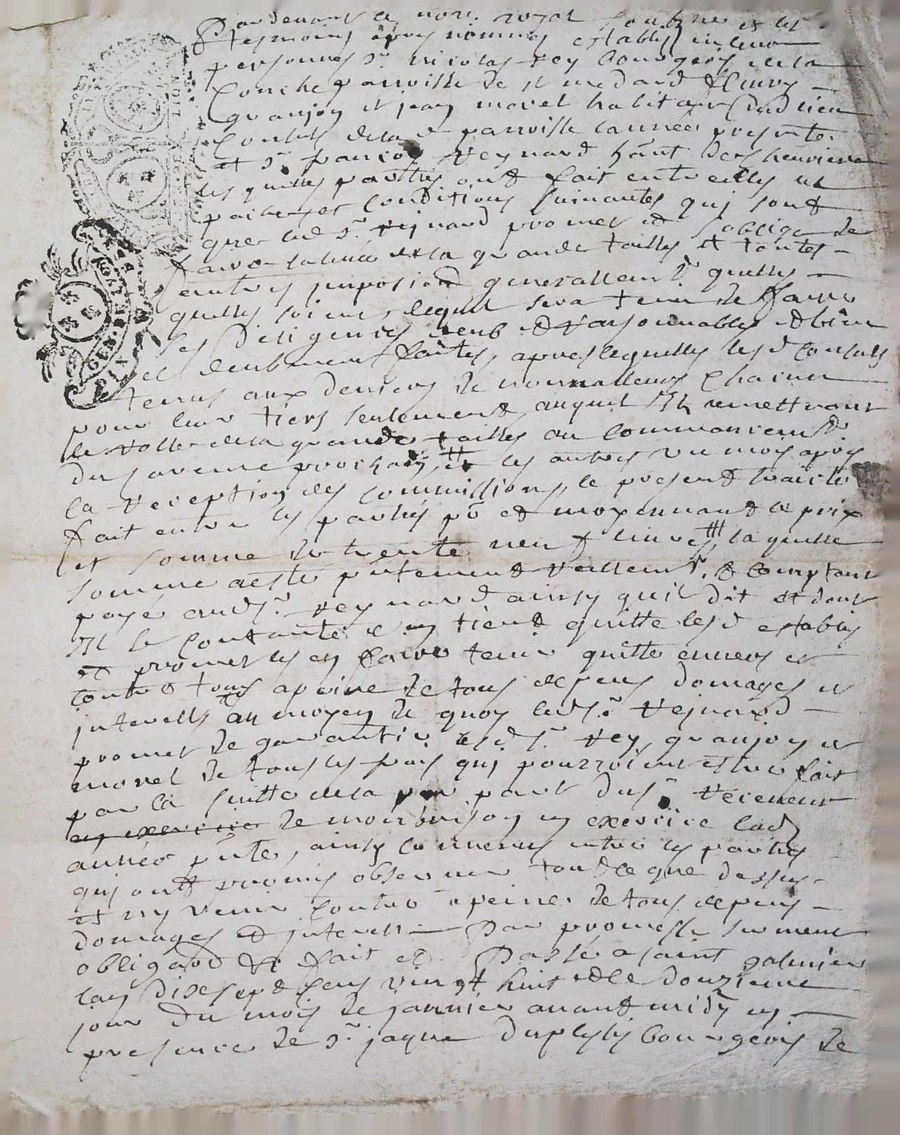 Par devant le no.re royal soubsigné et les
tesmoins apres nommés establis en leurs
personnes s.r nicolas rey bourgeois de la
parroisse de st medard
granjon et jean morel habitans dudit lieu
consuls de la d. parroisse l'année presente
et s.r reynard h.ant
les quelles parties ont fait entre elles les
pailles et conditions suivantes qui sont
que led. s.r reynard promet et s'oblige de
faire la levée de la grande taille et toutes
autres impositions generallem.t quelles
quelles soient, lequel sera tenu de faire
ses diligences deub et raisonnables et bien
et deubment faittes, apres lesquelles les d. consuls
tenus aux deniers de nonvalleurs chacun
pour leur tiers seulement, auquel ils remettront
le rolle de la grande taille au commancem.t
du prochain et les autres un mois apres
la reception des commissions, le present traicté
fait entre les parties po et moyennant le prix
et somme de trente neuf livres, la quelle
somme a esté p.ntement reellem.t et comptant
payé aud. s.r reynard ainsy qu'il dit et dont
il se contante et en tient quitte lesd. establis
et promet les en faire tenir quitte envers et
contre tous a peine de tous depens domages et
interests au moyen de quoy led. s.r reynard
promet de garantir lesd. s.r rey, granjon et
morel de tous les frais qui pourroient estre fait
par la suitte de la par part du s.r receveur
en exercice de montbrison en exercice lad.
année p.nte, ainsy convenu entre les parties
qui ont promis observer tout ce que dessus
et n'y venir contre a peine de tous depens
domages et interests Par promesse serment
obligaõn &c fait et Passé a saint galmier
l'an dix sept cens vingt huit et le douzieme
jour du mois de janvier avant midy en
presence de s.r jaque duplessis bourgeois de